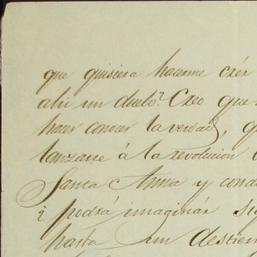 que quisiera hacerme crér
ahi un duelo? Creo que
hacer conocer la verdad, q
lanzarse á la revolucion
Santa Anna y cond
i podrá imaginár si
hasta un destier